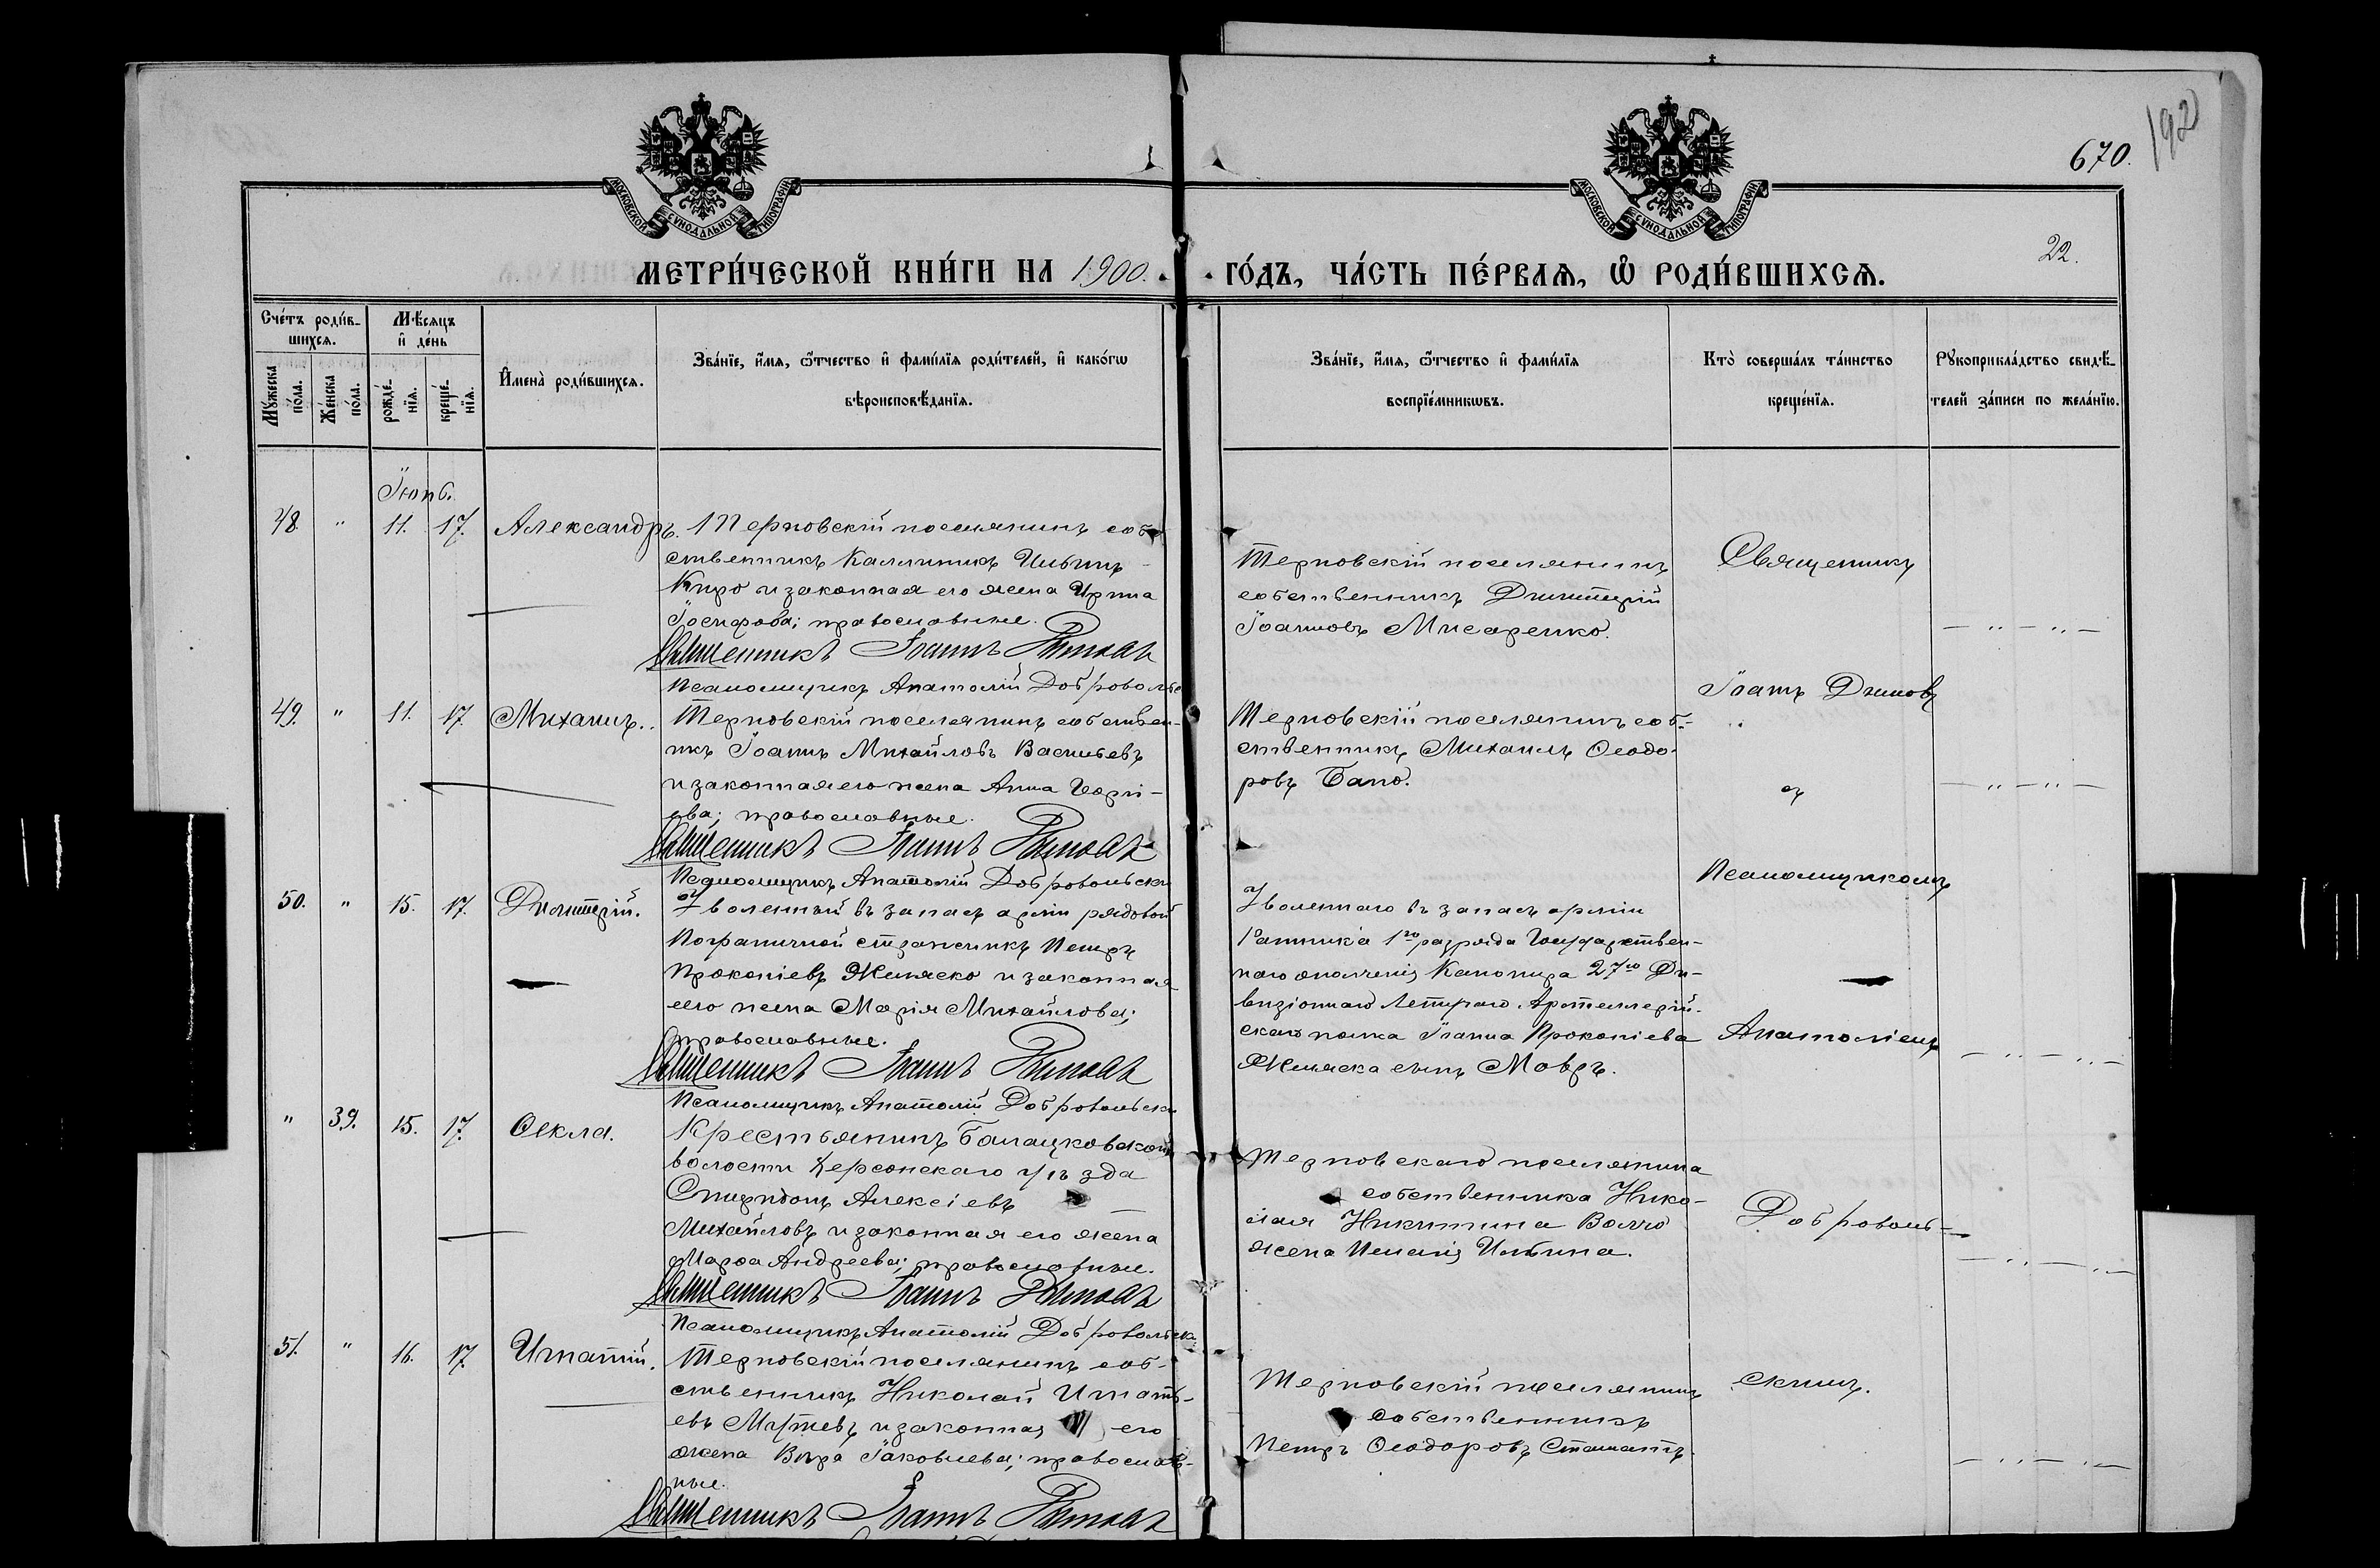 192
670.
МОСКОВСКОЙ СУНОДАЛЬНОЙ ТИПОГРАФІИ
МОСКОВСКОЙ СУНОДАЛЬНОЙ ТИПОГРАФІИ
22.
МЕТРИ́ЧЕСКОЙ КНИ́ГИ НА 1900.
ГО́ДЪ, ЧА́СТЬ ПЕ́РВАЯ, Ѽ РОДИ́ВШИХСЯ.
Сче́тъ роди́в-
шихся.
Мѣ́сяцъ
и҆ де́нь
Мꙋ́жеска
по́ла.
Же́нска
по́ла.
рожде́-
нїя.
креще́-
нїя.
И҆мена̀ роди́вшихся.
Зва́нїе, и҆́мя, ѻ҆́тчество и҆ фами́лїя роди́телей, и҆ како́гѡ
вѣроисповѣ́данїя.
Зва́нїе, и҆́мя, ѻ҆́тчество и҆ фами́лїя
воспрїе́мникѡвъ.
Кто̀ соверша́лъ та́инство
креще́нїя.
Рꙋкоприкла́дство свидѣ́-
телей за́писи по жела́нїю.
Іюнь.
48 " 11. 17. Александръ.
Терновскій поселянинъ соб-
ственникъ Каллиникъ Ильинъ
Киро и законная его жена Ирина
Іосифова; православные.
Священникъ Іоаннъ Димовъ
Псаломщикъ Анатолій Добровольс
Терновскій поселянинъ
собственникъ Димитрій
Іоанновъ Писаренко.
Священникъ
Іоаннъ Димовъ
49. " 11. 17 Михаилъ.
Терновскій поселянинъ собствен-
никъ Іоаннъ Михайловъ Васильевъ
и законная его жена Анна Георгі-
ева; православные.
Священникъ Іоаннъ Димовъ
Псаломщикъ Анатолій Добровольски
Терновскій поселянинъ соб-
ственникъ Михаилъ Ѳеодо-
ровъ Бано.
съ
Псаломщикомъ
50. " 15. 17. Димитрій.
Уволенный въ запасъ арміи рядовой
Пограничной стражникъ Петръ
Прокопіевъ Желяско и законная
его жена Марія Михайлова;
православные.
Священникъ Іоаннъ Димовъ
Псаломщикъ Анатолій Добровольски
Уволеннаго въ запасъ арміи
Ратника 1го разряда Государствен-
наго ополченія Канонира 27го Ди-
визіоннаго Летучаго Артиллерій-
скаго полка Іоанна Прокопіева
Желяска сынъ Мавръ.
Анатоліемъ
" 39. 15. 17. Ѳекла.
Крестьянинъ Балацковской
волости Херсонскаго уѣзда
Спиридонъ Алексіевъ
Михайловъ и законная его жена
Марѳа Андреева; православные.
Священникъ Іоаннъ Димовъ
Псаломщикъ Анатолій Добровольск
Терновскаго поселянина
собственника Нико-
лая Никитина Волчо
жена Пелагія Ильина.
Доброволь-
51. " 16. 17 Игнатій.
Терновскій поселянинъ соб-
ственникъ Николай Игнать-
евъ Мутевъ и законная его
жена Вѣра Іаковлева; православ-
ные.
Священникъ Іоаннъ Димовъ
Терновскій поселянинъ
собственникъ
Петръ Ѳеодоровъ Стаматъ.
скимъ.